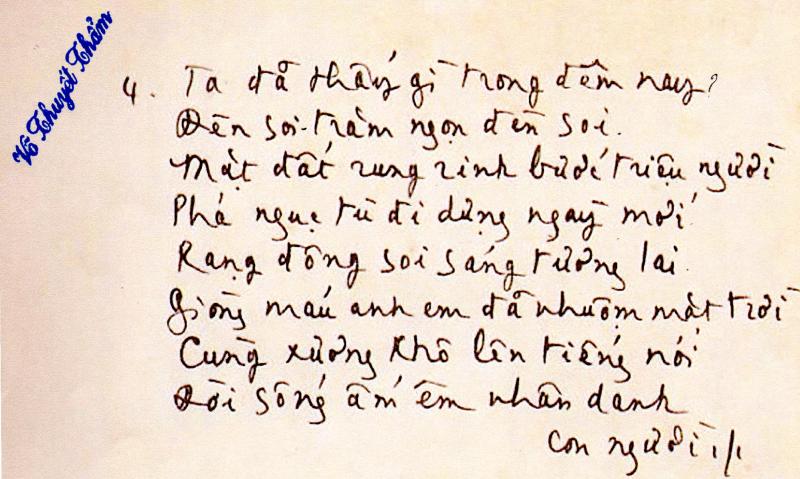 Võ Thuyết Thẩm
4. Ta đã thấy gì trong đêm nay?
Đèn soi - trăm ngọn đèn soi.
Mặt đất rung rinh bước triệu người
Phá ngục tù đi dựng ngày mới
Rạng đông soi sáng tương lai.
Giòng máu anh em đã nhuộm mặt trời
Cùng xương khô lên tiếng nói
Đời sống ấm êm nhân danh
con người ./.